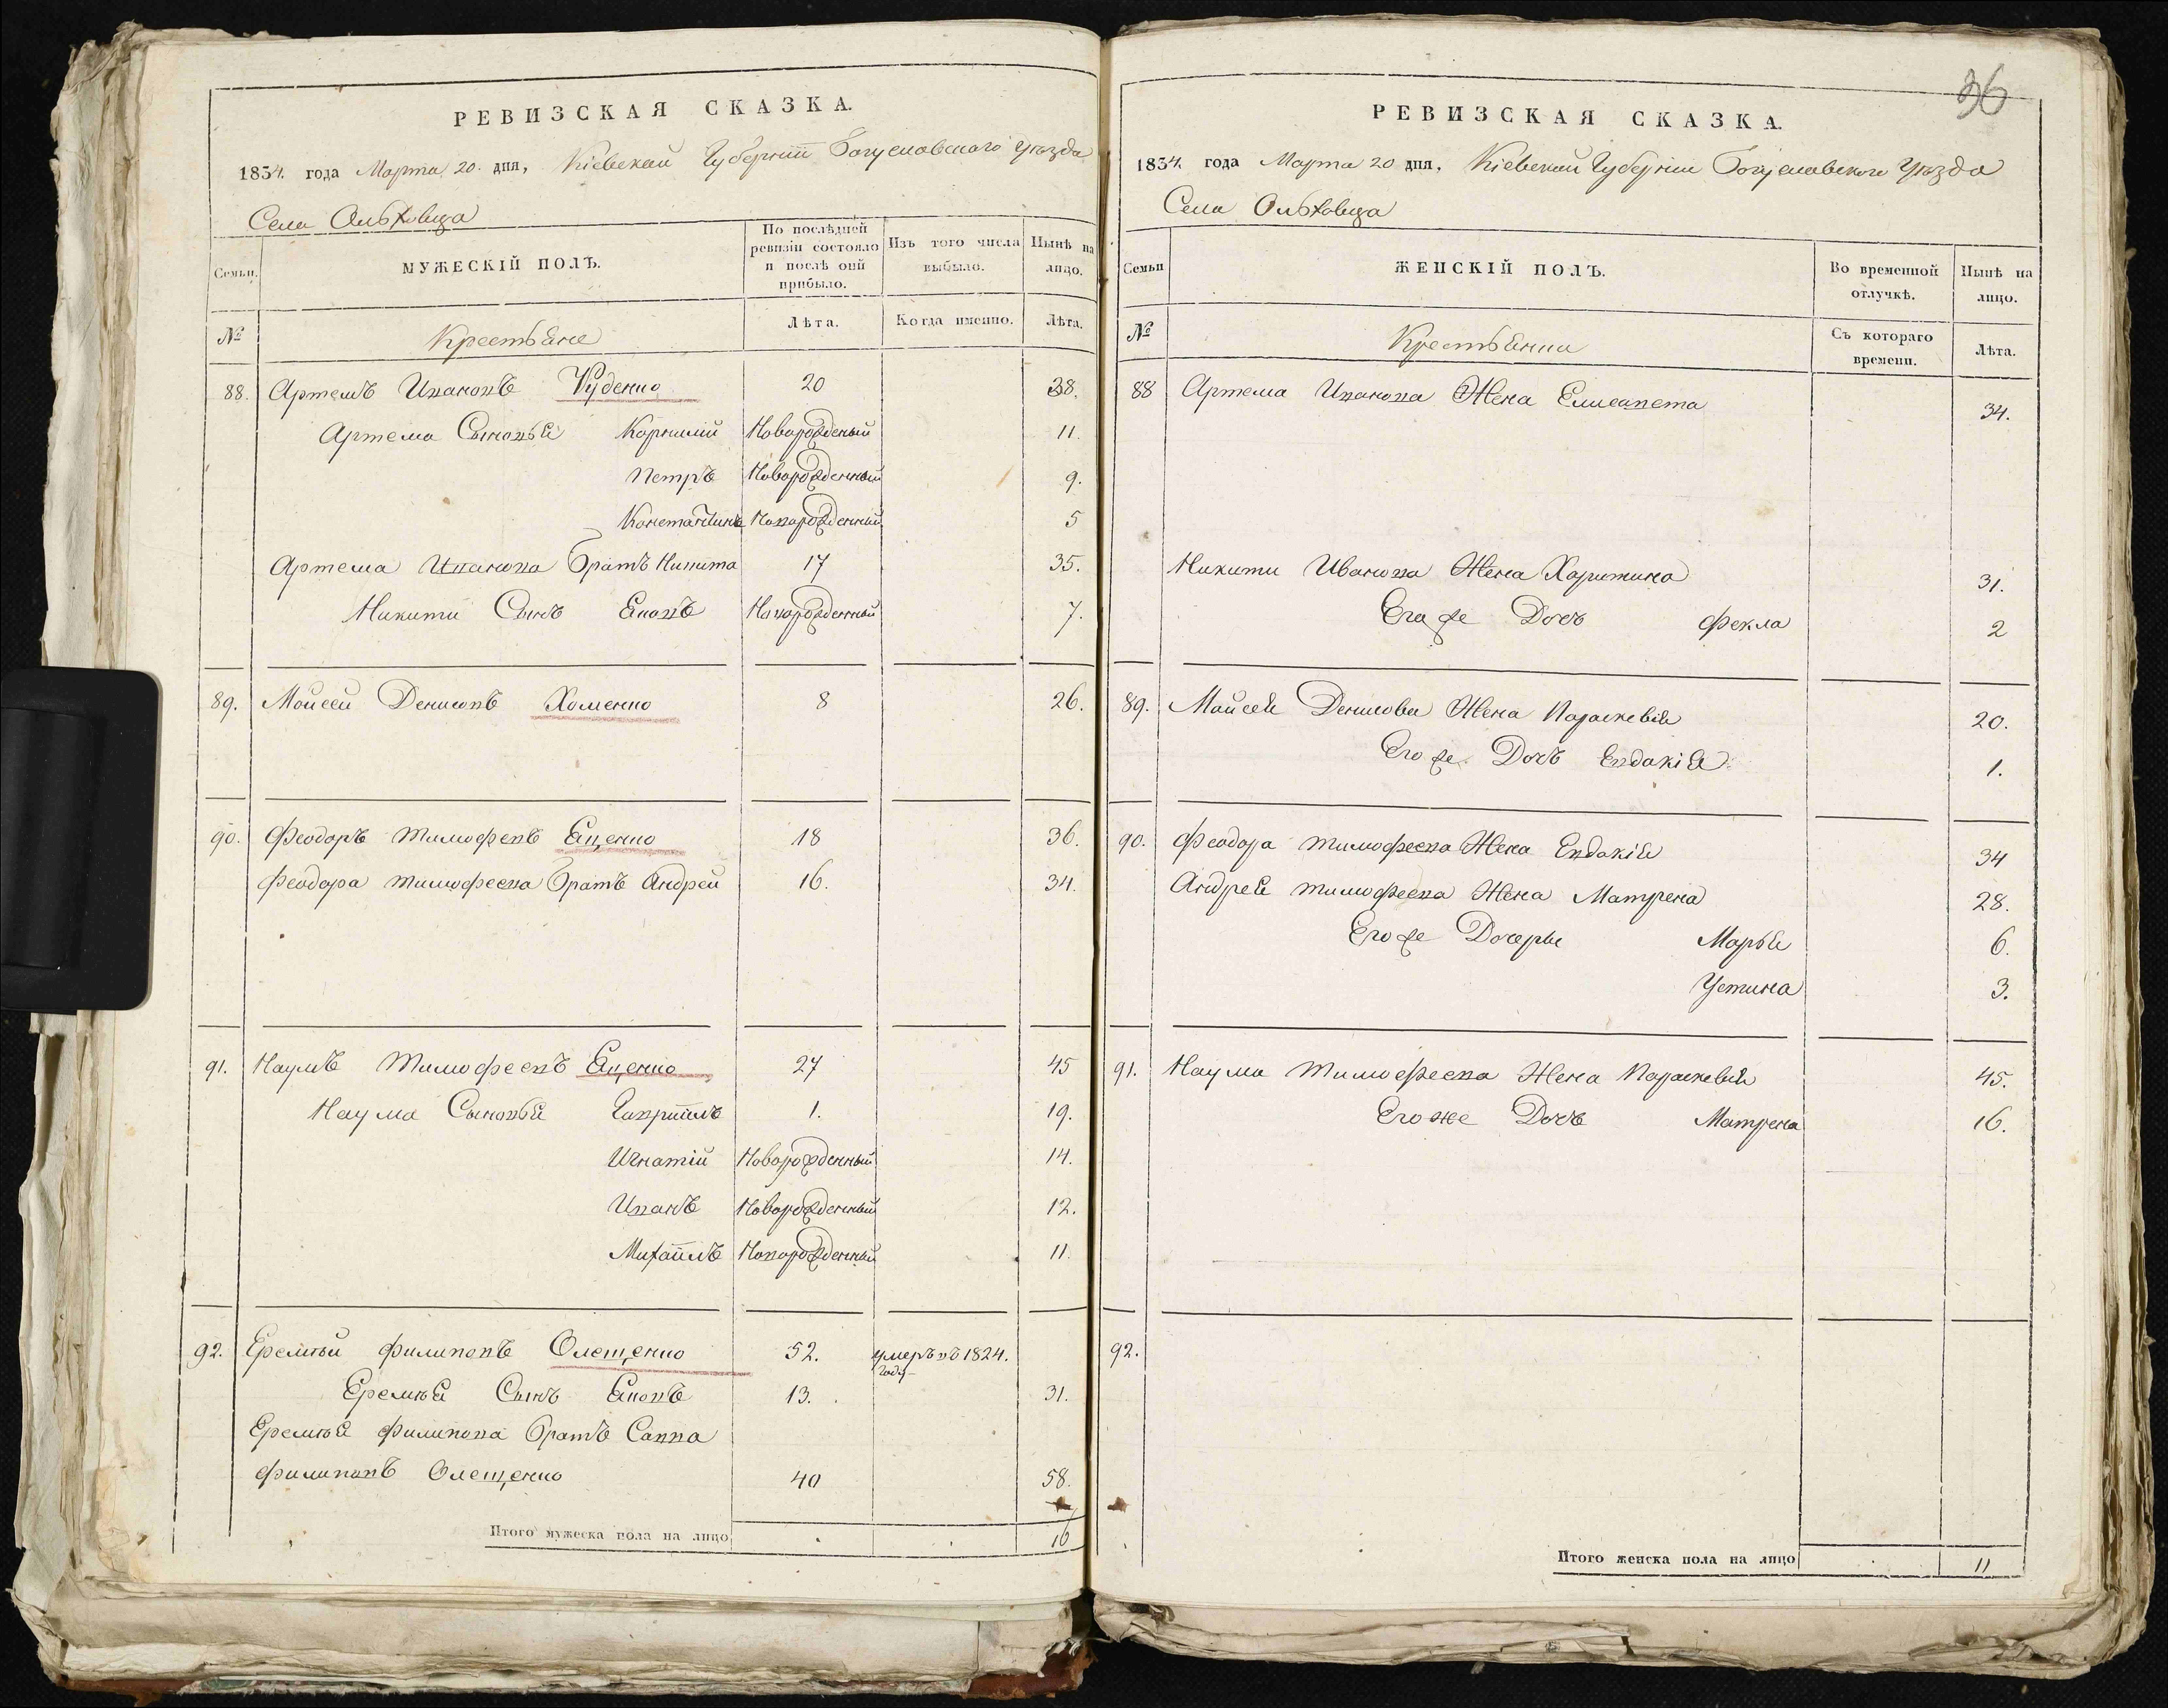 РЕВИЗСКАЯ СКАЗКА.
1834. года Марта 20. дня, Кіевской Губерніи Богуславскаго Уѣзда
Села Ольховца
Семьи. МУЖЕСКІЙ ПОЛЪ. По послѣдней ревизіи состояло и послѣ оной прибыло. Изъ того числа выбыло. Нынѣ на лицо.
№ Крестьяне Лѣта. Когда именно. Лѣта.
88. Артемъ Ивановъ Куденко 20 38.
Артема Сыновья Корнилій Новорожденый 11.
Петръ Новорожденный 9.
Константинъ Новорожденный 5
Артема Иванова Братъ Никита 17 35.
Никити Сынъ Яковъ Новорожденный 7.
89. Мойсей Денисовъ Хоменко 8 26.
90. Феодоръ Тимофевъ Яценко 18 36.
Феодора Тимофеева Братъ Андрей 16. 34.
91. Наумъ Тимофеевъ Яценко 27 45
Наума Сыновья Гавріилъ 1. 19.
Игнатій Новорожденный 14.
Иванъ Новорожденный 12.
Михаилъ Новорожденный 11.
92. Еремѣй Филиповъ Олещенко 52. умеръ въ 1824. году
Еремѣя Сынъ Яковъ 13. 31.
Еремѣя Филипова Братъ Савва
Филиповъ Олещенко 40 58.
Итого мужеска пола на лицо 16
36
РЕВИЗСКАЯ СКАЗКА.
1834. года Марта 20 дня, Кіевской Губерніи Богуславского Уѣзда
Села Ольховца
Семьи ЖЕНСКІЙ ПОЛЪ. Во временной отлучкѣ. Нынѣ на лицо.
№ Крестьянки Съ котораго времени. Лѣта.
88 Артема Иванова Жена Елисавета 34.
Никити Иванова Жена Харитина 31.
Его же Дочь Фекла 2
89. Мойсея Денисова Жена Параскевія 20.
Его же Дочь Евдакія 1.
90. Феодора Тимофеева Жена Евдакія 34
Андрея Тимофеева Жена Матрена 28.
Его же Дочерьи Марья 6.
Устина 3.
91. Наума Тимофеева Жена Параскевія 45.
Его же Дочь Матрена 16.
92.
Итого женска пола на лицо 11